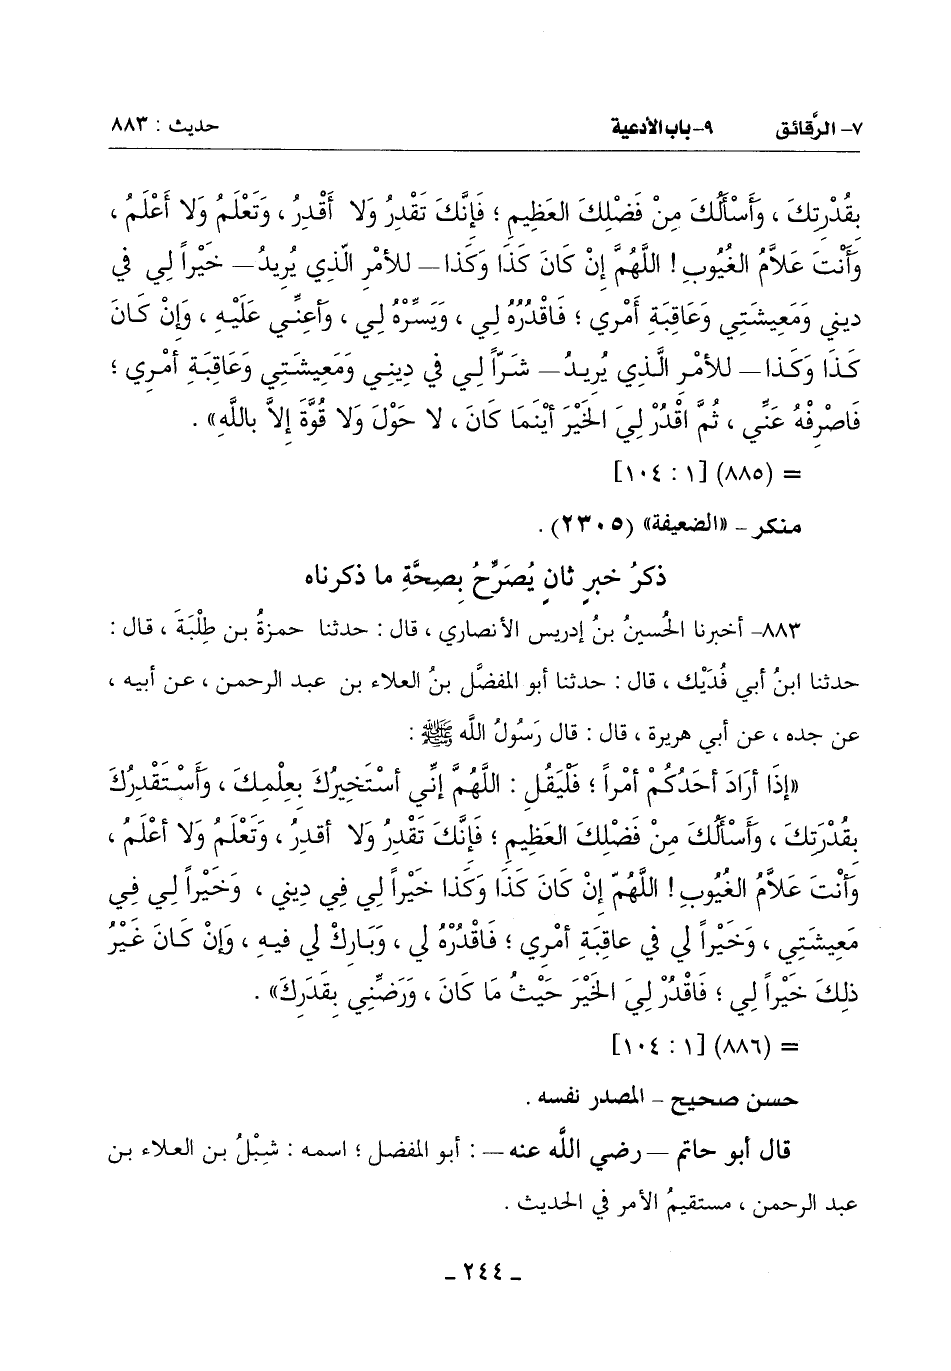 ٧- الرَّقائق ٩-باب الأدعية حديث : ٨٨٣
بِقُدْرَتِكَ ، وَأَسْأَلُكَ مِنْ فَضْلِكَ العَظِيمِ ؛ فَإِنَّكَ تَقْدِرُ وَلا أَقْدِرُ ، وَتَعْلَمُ وَلا أَعْلَمُ ،
وَأَنْتَ عَلاَّمُ الغُيُوبِ ! اللَّهُمَّ إِنْ كَانَ كَذَا وَكَذا — لِلأَمْرِ الَّذِي يُرِيدُ — خَيْراً لِي فِي
دِيني وَمَعِيشَتِي وَعَاقِبَةِ أَمْرِي ؛ فَاقْدُرْهُ لِي ، وَيَسِّرْهُ لِي ، وَأَعِنِّي عَلَيْهِ ، وَإِنْ كَانَ
كَذَا وَكَذا — لِلأَمْرِ الَّذِي يُرِيدُ — شَرّاً لِي فِي دِينِي وَمَعِيشَتِي وَعَاقِبَةِ أَمْرِي ؛
فَاصْرِفْهُ عَنِّي ، ثُمَّ اقْدُرْ لِيَ الخَيْرَ أَيْنَمَا كَانَ ، لا حَوْلَ وَلا قُوَّةَ إِلاَّ بِاللَّهِ» .
= (٨٨٥) [١ : ١٠٤]
منكر - «الضعيفة» (٢٣٠٥) .
ذكرُ خبرٍ ثانٍ يُصَرِّحُ بِصِحَّةِ ما ذكرناه
٨٨٣- أخبرنا الحُسينُ بنُ إدريس الأنصاري ، قال : حدثنا حمزةُ بن طِلْبَةَ ، قال :
حدثنا ابنُ أبي فُدَيْك ، قال : حدثنا أبو المفضَّل بنُ العلاء بن عبد الرحمن ، عن أبيه ،
عن جده ، عن أبي هريرة ، قال : قال رَسُولُ اللَّه ﷺ :
«إِذَا أَرَادَ أَحَدُكُمْ أَمْراً ؛ فَلْيَقُلِ : اللَّهُمَّ إِنِّي أَسْتَخِيرُكَ بِعِلْمِكَ ، وَأَسْتَقْدِرُكَ
بِقُدْرَتِكَ ، وَأَسْأَلُكَ مِنْ فَضْلِكَ العَظِيمِ ؛ فَإِنَّكَ تَقْدِرُ وَلا أَقدِرُ ، وَتَعْلَمُ وَلا أَعْلَمُ ،
وَأَنْتَ عَلاَّمُ الغُيُوبِ ! اللَّهُمَّ إِنْ كَانَ كَذَا وَكَذا خَيْراً لِي فِي دِيني ، وَخَيْراً لِي فِي
مَعِيشَتِي ، وَخَيْراً لِي فِي عاقِبَةِ أَمْرِي ؛ فَاقْدُرْهُ لِي ، وَبَارِكْ لِي فيهِ ، وَإِنْ كَانَ غَيْرُ
ذلِكَ خَيْراً لِي ؛ فَاقْدُرْ لِيَ الخَيْرَ حَيْثُ مَا كَانَ ، وَرَضِّنِي بِقَدَرِكَ» .
= (٨٨٦) [١ : ١٠٤]
حسن صحيح - المصدر نفسه .
قال أبو حاتم — رضي اللَّه عنه — : أبو المفضل ؛ اسمه : شِبْلُ بن العلاء بن
عبد الرحمن ، مستقيمُ الأمر في الحديث .
- ٢٤٤ -